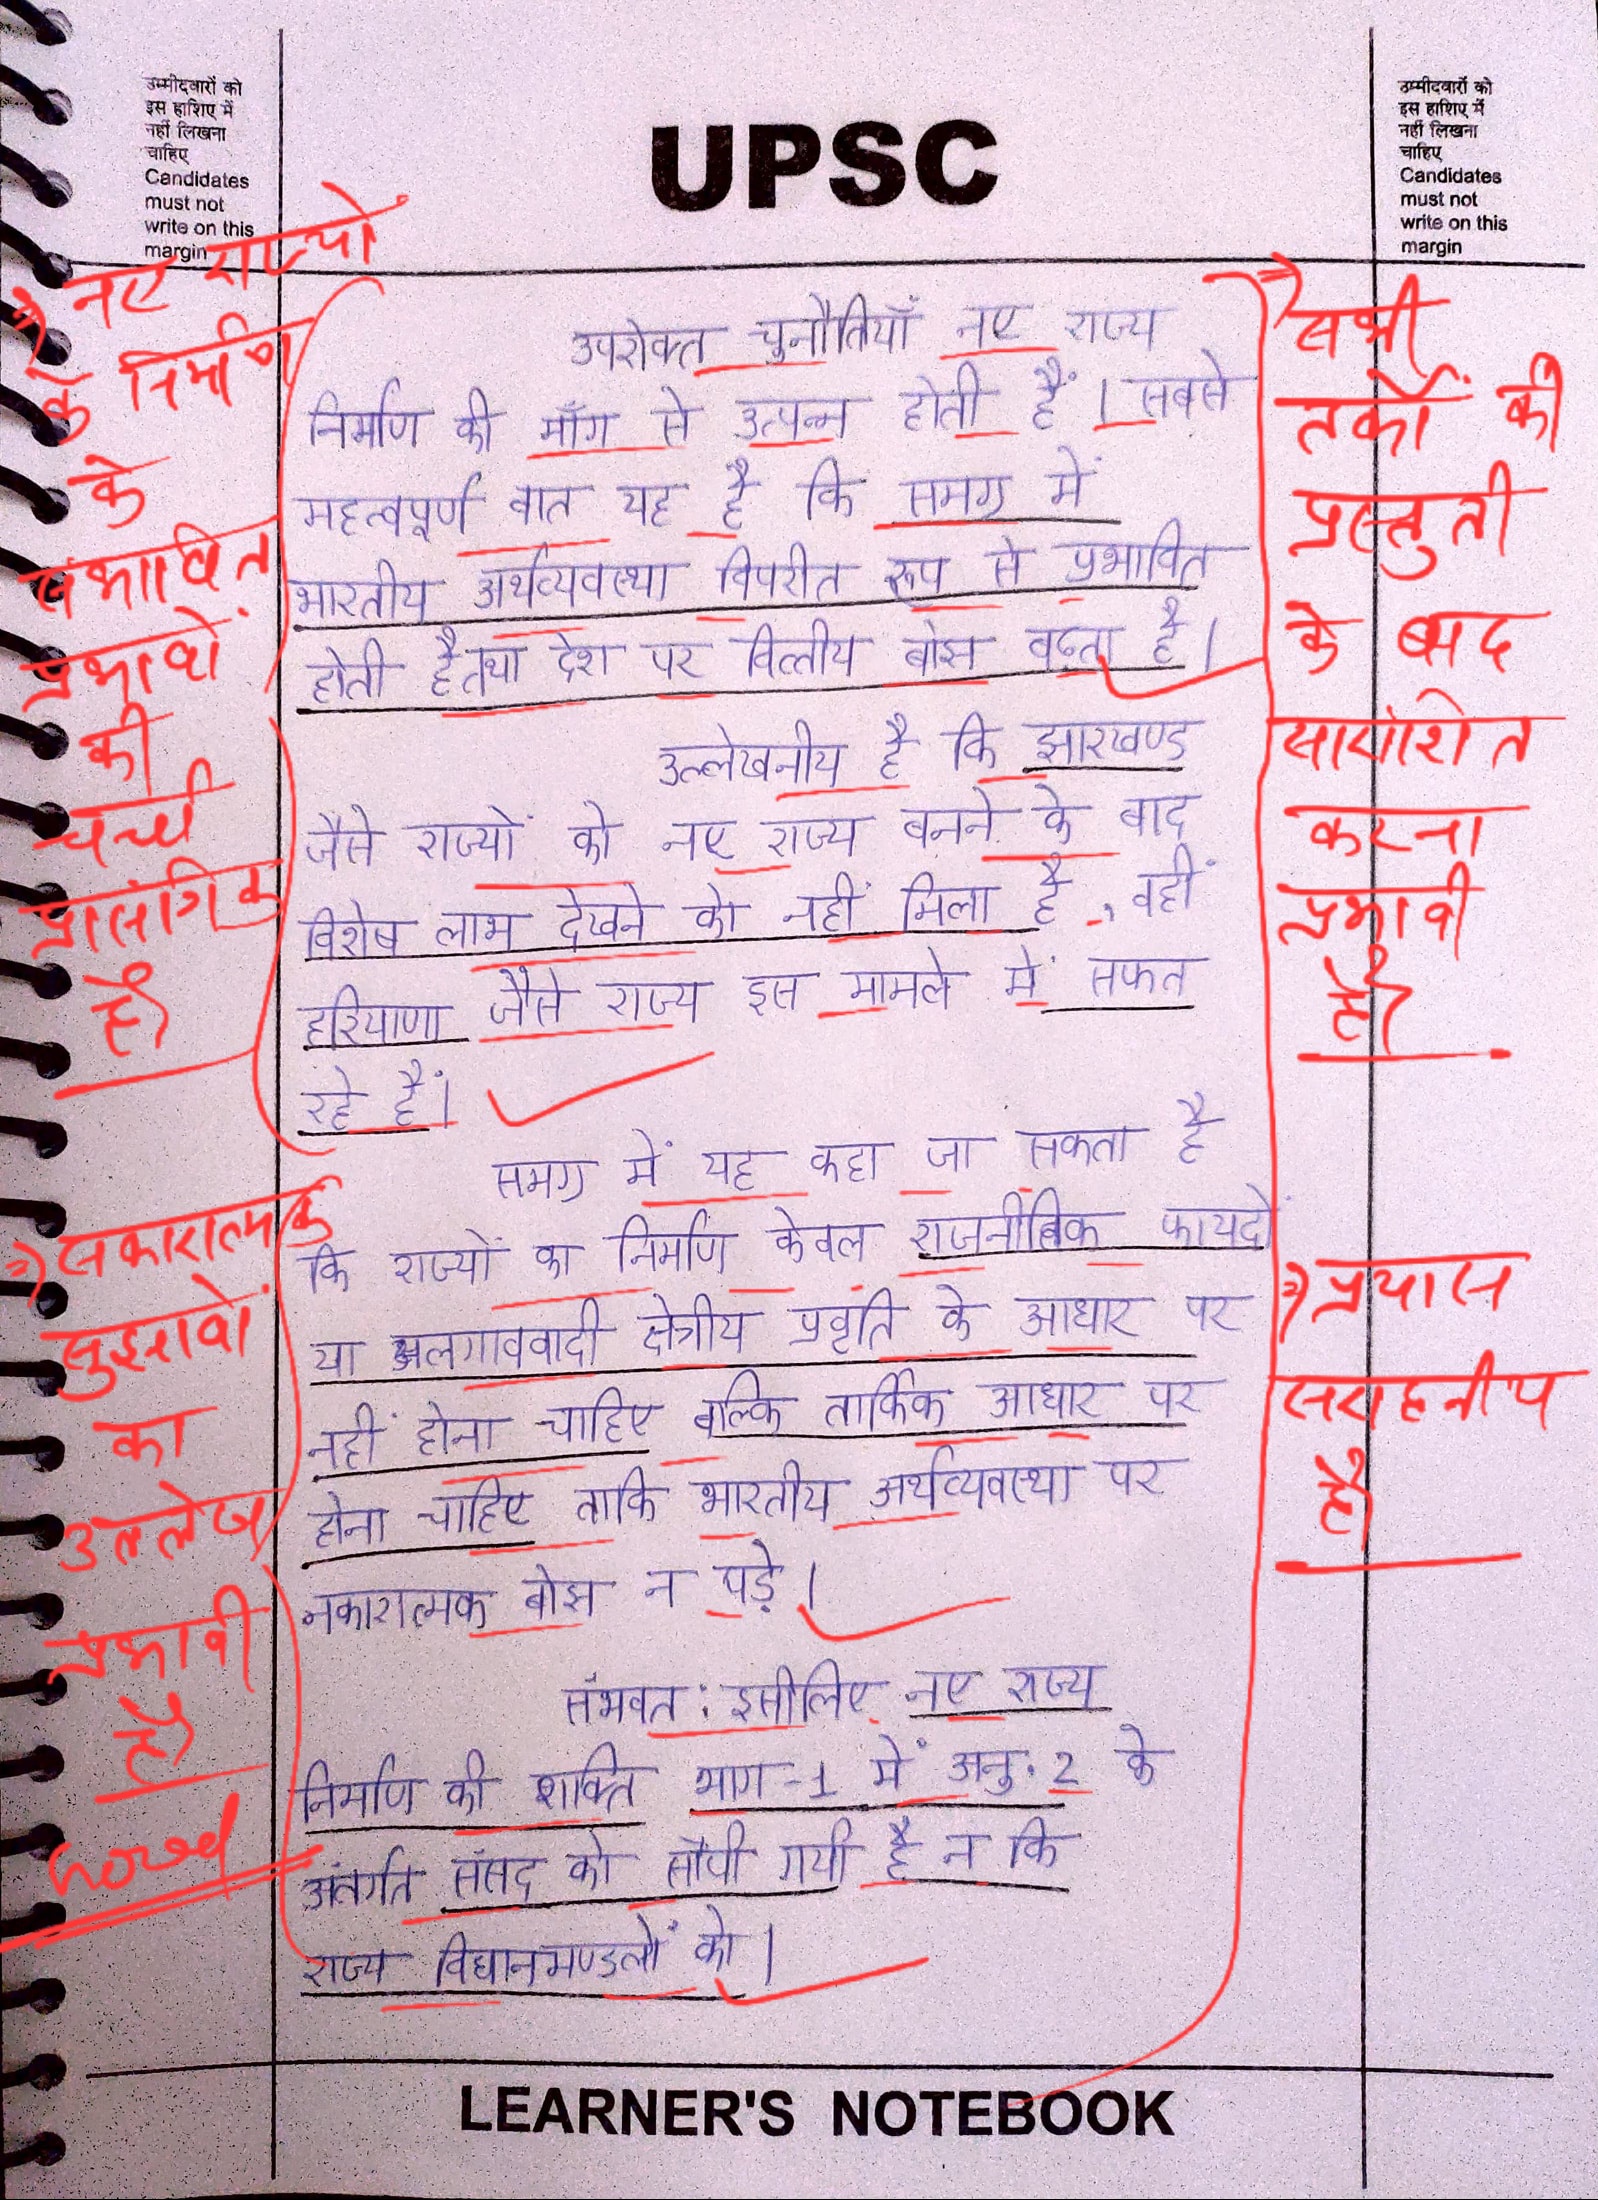 उम्मीदवारों को
इस हाशिए में
नहीं लिखना
चाहिए
Candidates
must not
write on this
margin
UPSC
उम्मीदवारों को
इस हाशिए में
नहीं लिखना
चाहिए
Candidates
must not
write on this
margin
⇒ नए राज्यों
के निर्माण
के
संभावित
प्रभावों
की
चर्चा
प्रासंगिक
है
उपरोक्त चुनौतियाँ नए राज्य
निर्माण की माँग से उत्पन्न होती हैं। सबसे
महत्वपूर्ण बात यह है कि समग्र में
भारतीय अर्थव्यवस्था विपरीत रूप से प्रभावित
होती है तथा देश पर वित्तीय बोझ बढ़ता है।
उल्लेखनीय है कि झारखण्ड
जैसे राज्यों को नए राज्य बनने के बाद
विशेष लाभ देखने को नहीं मिला है, वहीं
हरियाणा जैसे राज्य इस मामले में सफल
रहे हैं।
समग्र में यह कहा जा सकता है
कि राज्यों का निर्माण केवल राजनीतिक फायदों
या अलगाववादी क्षेत्रीय प्रवृति के आधार पर
नहीं होना चाहिए बल्कि तार्किक आधार पर
होना चाहिए ताकि भारतीय अर्थव्यवस्था पर
नकारात्मक बोझ न पड़े।
संभवत: इसीलिए नए राज्य
निर्माण की शक्ति भाग-1 में अनु. 2 के
अंतर्गत संसद को सौंपी गयी है न कि
राज्य विधानमण्डलों को।
⇒ सभी
तर्कों की
प्रस्तुती
के बाद
सारांशित
करना
प्रभावी
है
⇒ सकारात्मक
सुझावों
का
उल्लेख
प्रभावी
है
Good
⇒ प्रयास
सराहनीय
है
LEARNER'S NOTEBOOK